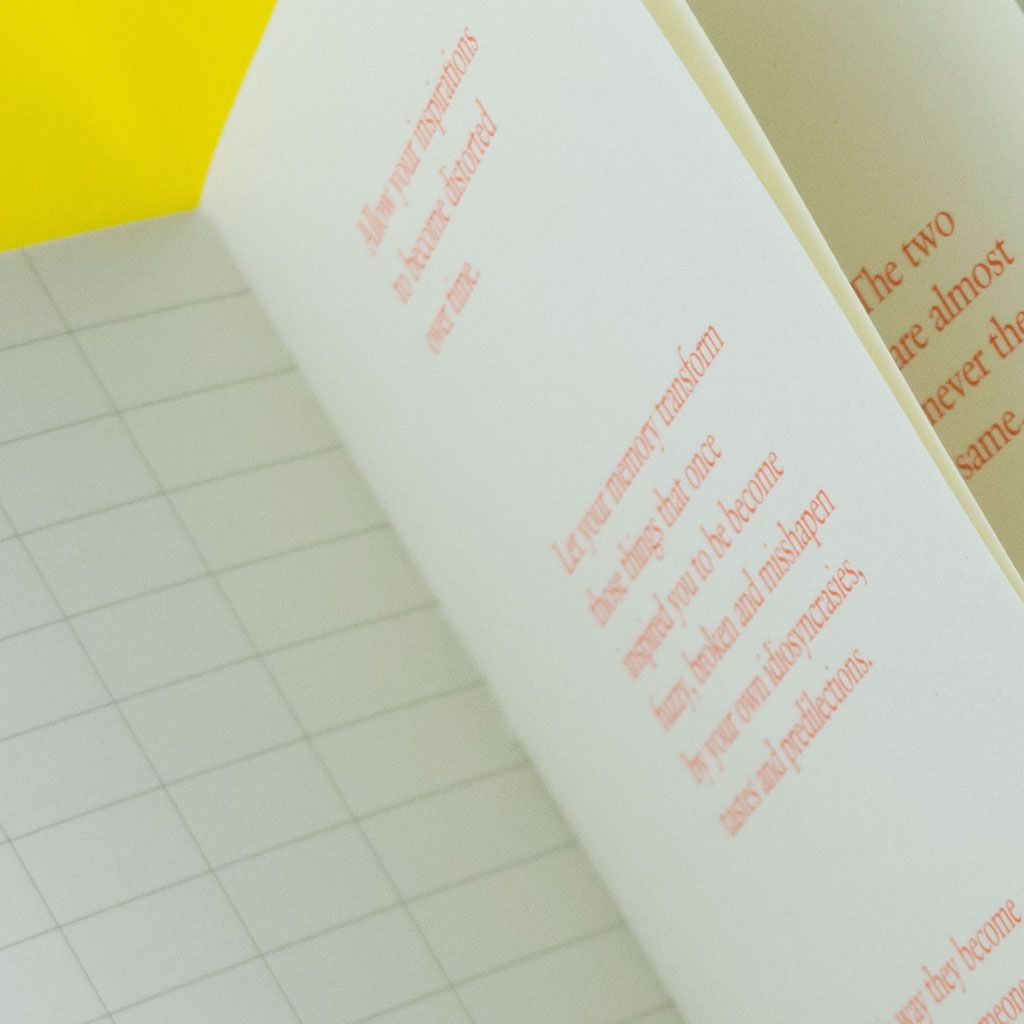 Allow your inspirations
to become distorted
over time.
Let your memory transform
those things that once
inspired you to be become
fuzzy, broken and misshapen
by your own idiosyncrasies,
tastes and predilections.
way they become
The two
are almost
never the
same.